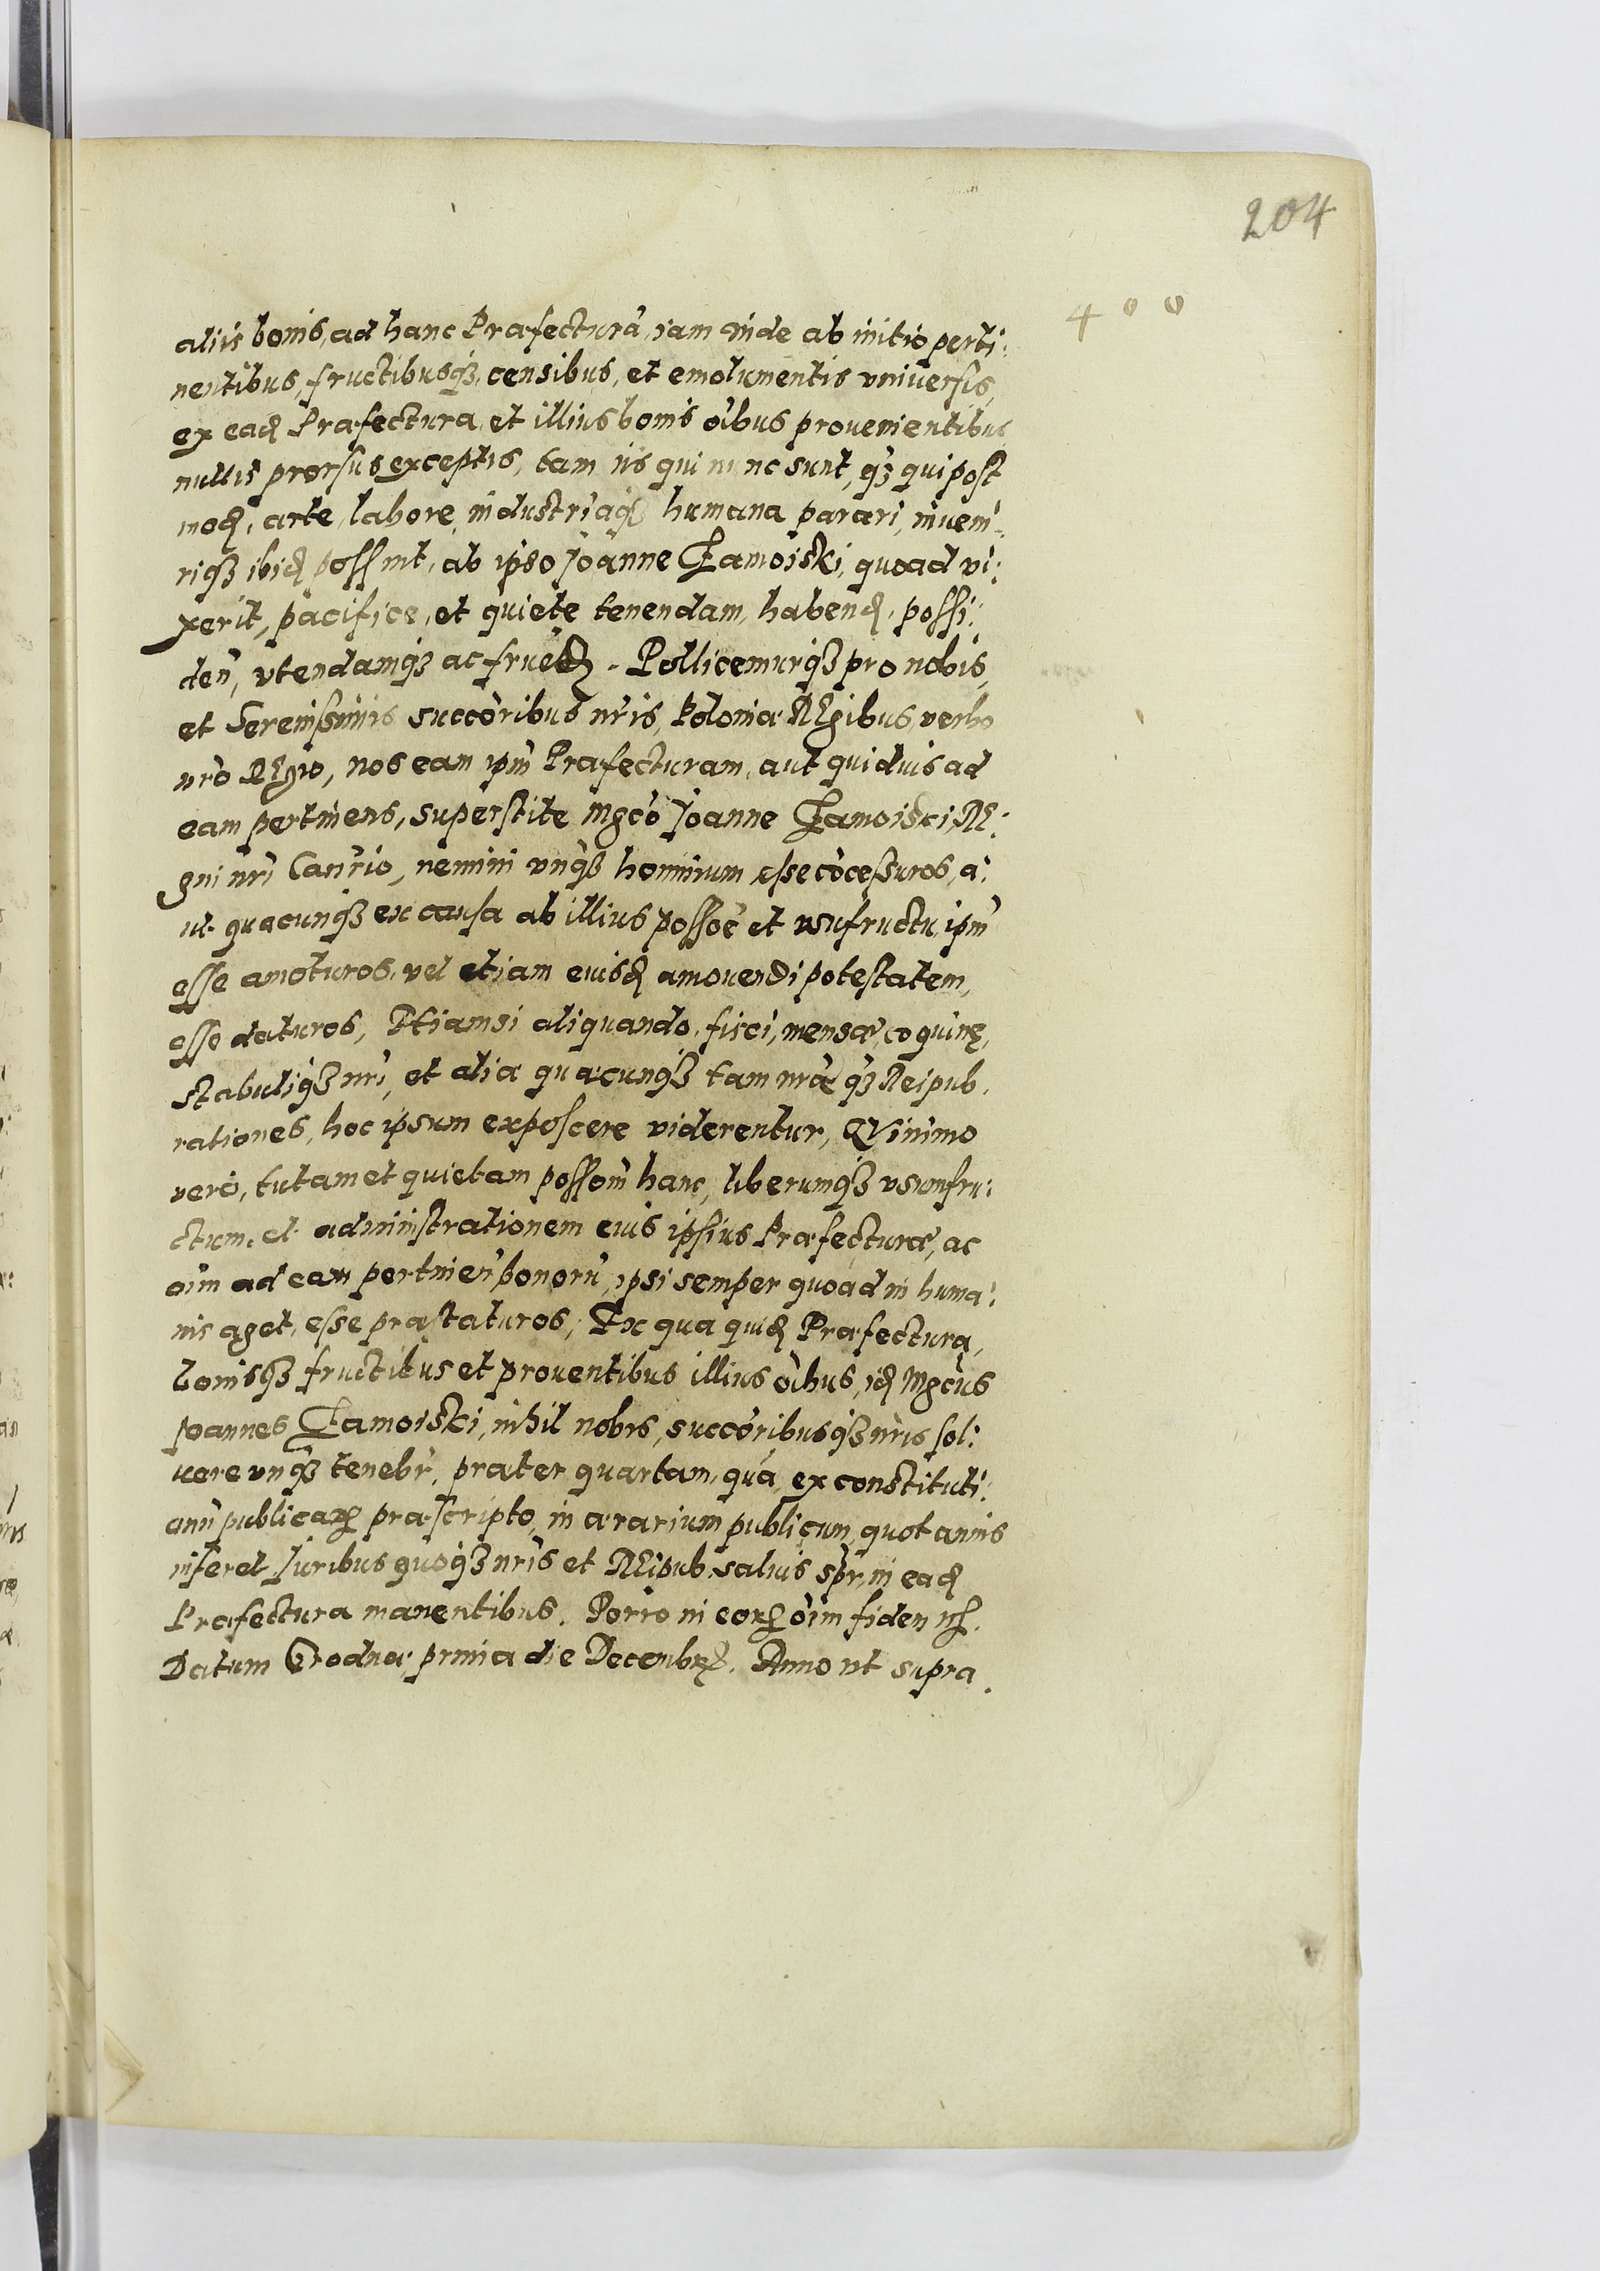 204
400
aliis bonis, ad hanc Præfecturã, iam inde ab initio perti:
nentibus, fructibusqȝ, censibus, et emolumentis vniuersis,
ex eadꝫ Præfectura, et illius bonis oĩbus prouenientibus
nullis prorsus exceptis, tam iis qui nunc sunt, qȝ qui post
modꝫ, arte, labore, industriaqȝ humana parari, inueni-
riqȝ ibidꝫ possint, ab ipso Joanne Zamoiski, quoad vi:
xerit, pacifice, et quiete tenendam, habendꝫ, possi:
den̄, vtendamqȝ ac fruendꝫ. Pollicemurqȝ pro nobis,
et Serenissimis succōribus nr̄is, Poloniæ Regibus, verbo
nr̄o Regio, nos eam ipm̄ Præfecturam, aut quiduis ad
eam pertinens, superstite Mgcō Joanne Zamoiski, Re:
gni nr̄i Canr̄io, nemini vnqȝ hominum esse cōcessuros, a:
ut quacunqȝ ex causa ab illius possōe et vsufructu ipm̄
esse amoturos, vel etiam eiusdꝫ amouendi potestatem,
esse daturos, Etiamsi aliquando, fisci, mensæ, coquinę,
stabuliqȝ nr̄i, et aliæ quæcunqȝ tam nr̄æ qȝ Reipub.
rationes, hoc ipsum exposcere viderentur, Quinimo
vero, tutam et quietam possōm̄ hanc, liberumqȝ vsumfru:
ctum, et administrationem eius ipsius Præfecturæ, ac
oīm ad eam pertinen̄ bonorũ, ipsi semper quoad in huma:
nis aget, esse præstaturos; Ex qua quidꝫ Præfectura,
bonisqȝ fructibus et prouentibus illius oĩbus, idꝫ Mgcūs
Joannes Zamoiski, nihil nobis, succōribusqȝ nr̄is sol:
uere vnqȝ tenebr̄, præter quartam, quã, ex constituti:
onũ publicaꝝ præscripto, in ærarium publicum quotannis
inferet, Juribus quoqȝ nr̄is et Reipub. saluis sp̄r, in eadꝫ
Præfectura manentibus. Porro in eorꝫ oīm fidem nꝫ.
Datum Grodnæ prima die Decembrꝫ. Anno vt supra.